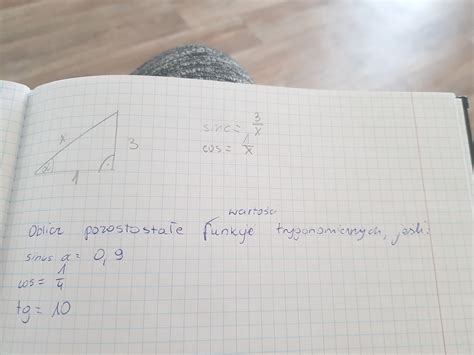 x
3
α
1
sinα = 3/x
cos = 1/x
wartości
Oblicz pozostałe funkcje trygonomicznych, jeśli:
sinus α = 0,9
cos = 1/4
tg = 10